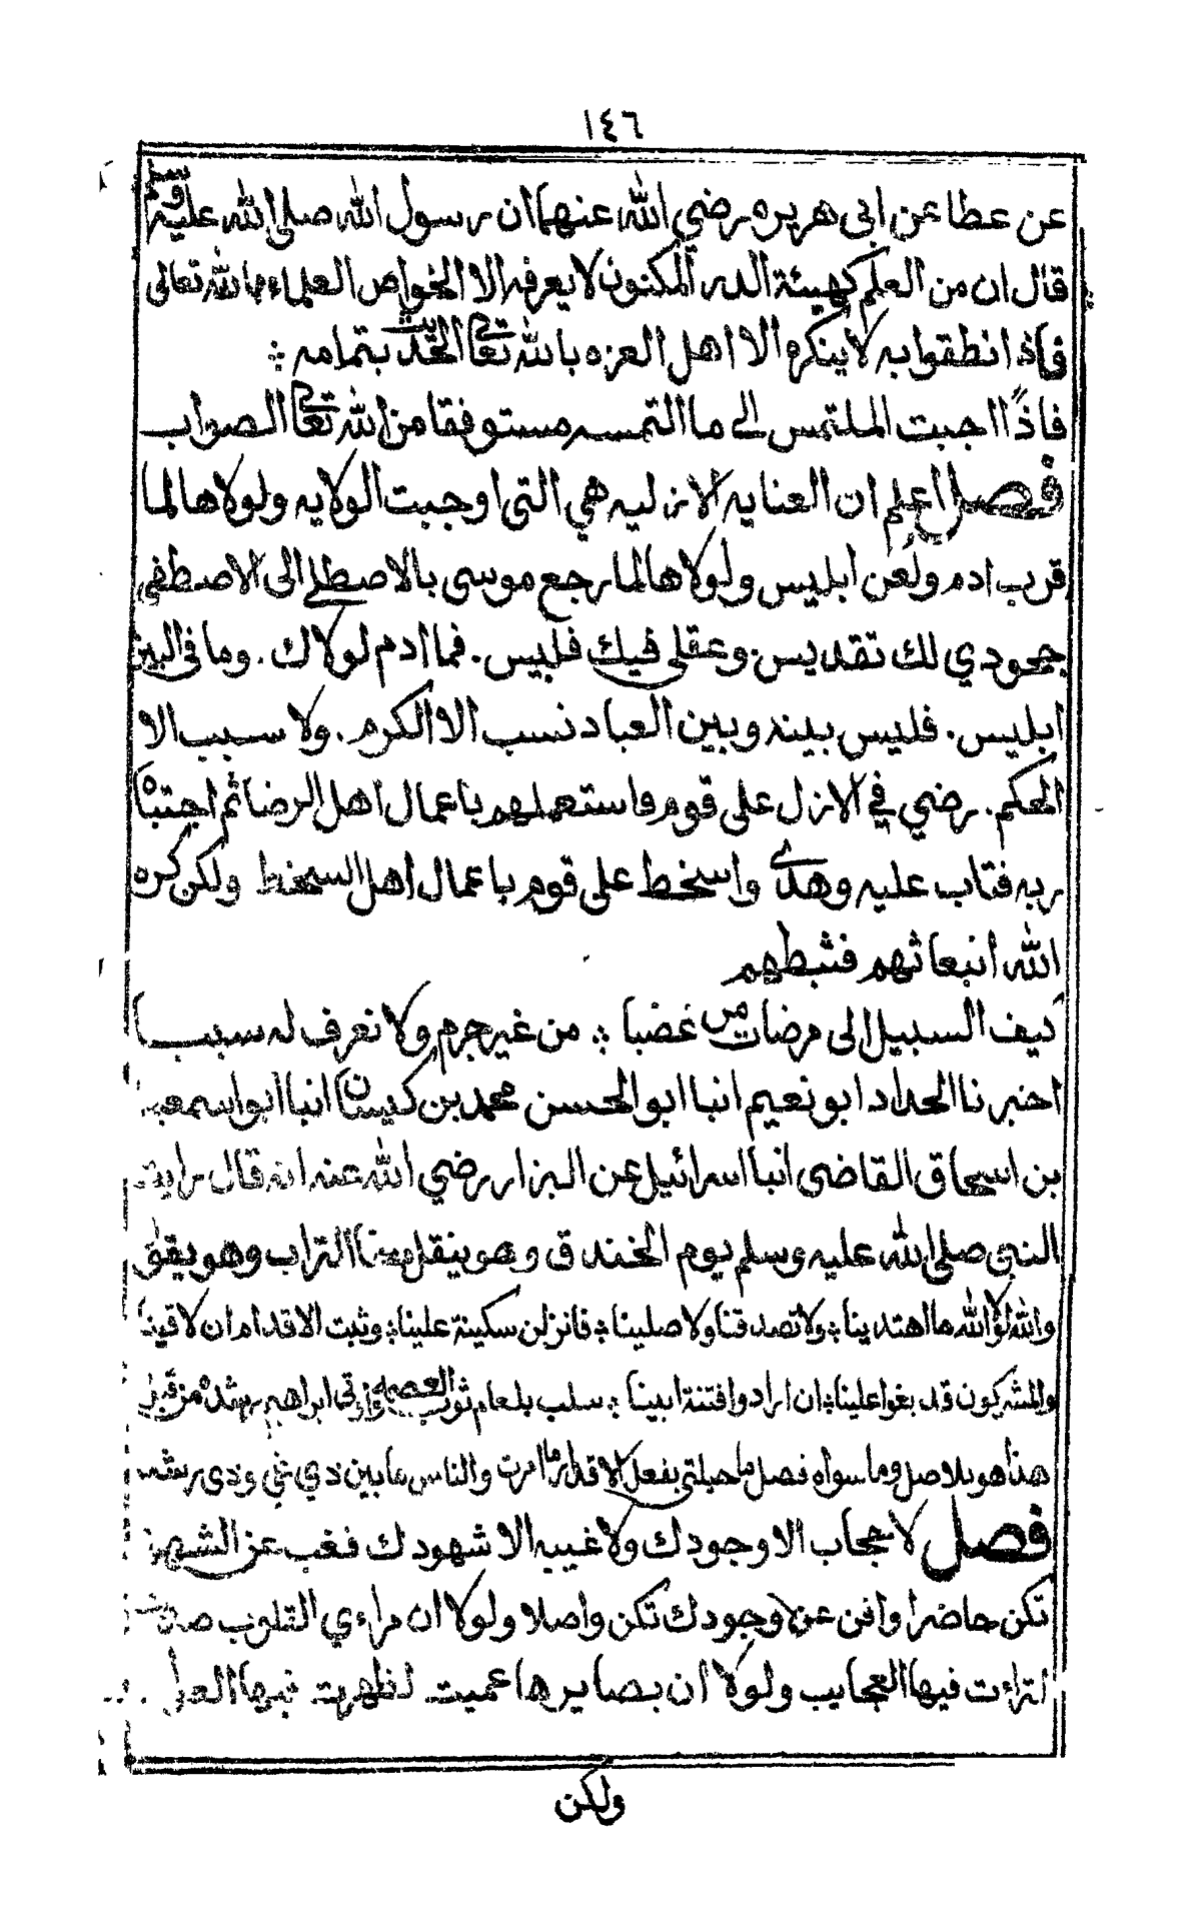 ١٤٦
عن عطا عن ابى هريره رضي الله عنهما ان رسول الله صلى الله عليه وسلم
قال ان من العلم كهيئة الدر المكنون لا يعرفه الا الخواص العلماء بالله تعالى
فاذا نطقوا به لا ينكره الا اهل العزه بالله تعالى الحديث بتمامه ؞
فاذًا اجبت الملتمس الى ما التمسه مستوفقا من الله تعالى الصواب
فصل اعلم ان العنايه الازليه هي التى اوجبت الولايه ولولاها لما
قرب ادم ولعن ابليس ولولاها لما رجع موسى بالاصطلى الى الاصطفى
جحودي لك تقديس . وعقلى فيك فلبيس . فما ادم لولاك . وما فى البين
ابليس . فليس بينه وبين العباد نسب الا الكرم . ولا سبب الا
الحكم . رضي في الازل على قوم فاستعملهم باعمال اهل الرضا ثم اجتباه
ربه فتاب عليه وهدى واسخط على قوم باعمال اهل السخط ولكن كره
الله انبعاثهم فثبطهم
كيف السبيل الى مرضات من غضبا ؞ من غير جرم ولا نعرف له سببا
اخبرنا الحداد ابو نعيم انبا ابو الحسن محمد بن كيسان انبا ابو اسمعيل
بن اسحاق القاضى انبا اسرائيل عن البزار رضي الله عنه انه قال رايت
النبى صلى الله عليه وسلم يوم الخندق وهو ينقل معنا التراب وهو يقول
والله لولا الله ما اهتدينا ؞ ولا تصدقنا ولا صلينا ؞ فانزلن سكينة علينا ؞ وثبت الاقدام ان لاقينا
والمشركون قد بغوا علينا ؞ ان ارادوا فتنة ابينا ؞ سلب بلعام ثوب العصمه واوتى ابراهيم رشده من قبل
هذا هو بلا صل وما سواه فصل ما حيلتى بفعل الاقدار ما امرت والناس ما بين ذي غي وذى رشد
فصل لا حجاب الا وجودك ولا غيبه الا شهودك فغب عن الشهود
تكن حاضرا وافن عن وجودك تكن واصلا ولولا ان مراءي القلوب
لتراءت فيها العجايب ولولا ان بصايرها عميت لظهرت فيها
ولكن